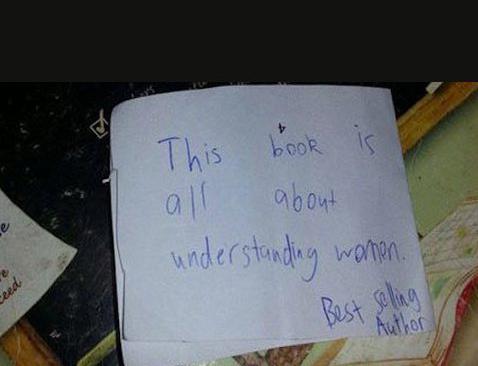 This book is
all about
understanding women.
Best selling
Author
eed